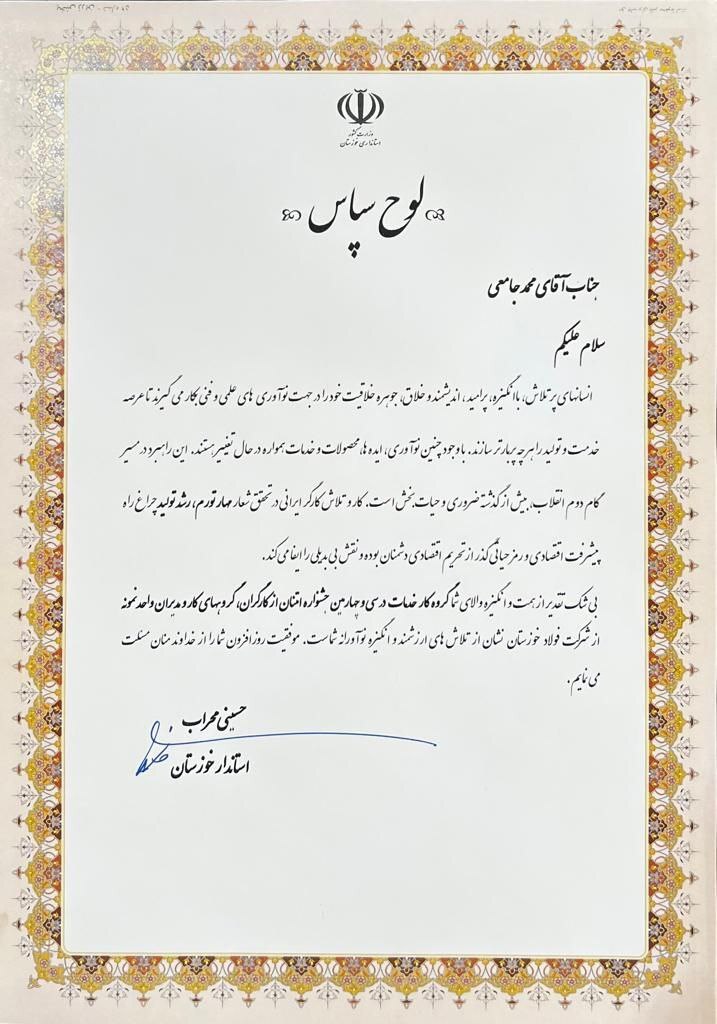 وزارت کشور
استانداری خوزستان
لوح سپاس
جناب آقای محمد جامعی
سلام علیکم
انسانهای پرتلاش، باانگیزه، پرامید، اندیشمند و خلاق، جوهره خلاقیت خود را در جهت نوآوری های علمی و فنی بکار می گیرند تا عرصه
خدمت و تولید را هرچه پربارتر سازند. باوجود چنین نوآوری، ایده ها، محصولات و خدمات همواره در حال تغییر هستند. این راهبرد در مسیر
گام دوم انقلاب، بیش از گذشته ضروری و حیات بخش است. کار و تلاش کارگر ایرانی در تحقق شعار مهار تورم، رشد تولید چراغ راه
پیشرفت اقتصادی و رمز حیاتی گذر از تحریم اقتصادی دشمنان بوده و نقش بی بدیلی را ایفا می کند.
بی شک تقدیر از همت و انگیزه والای شما گروه کار خدمات در سی و چهارمین جشنواره امتنان از کارگران، گروههای کار و مدیران واحد نمونه
از شرکت فولاد خوزستان نشان از تلاش های ارزشمند و انگیزه نوآورانه شماست. موفقیت روزافزون شما را از خداوند منان مسئلت
می نمایم.
حسینی محراب
استاندار خوزستان